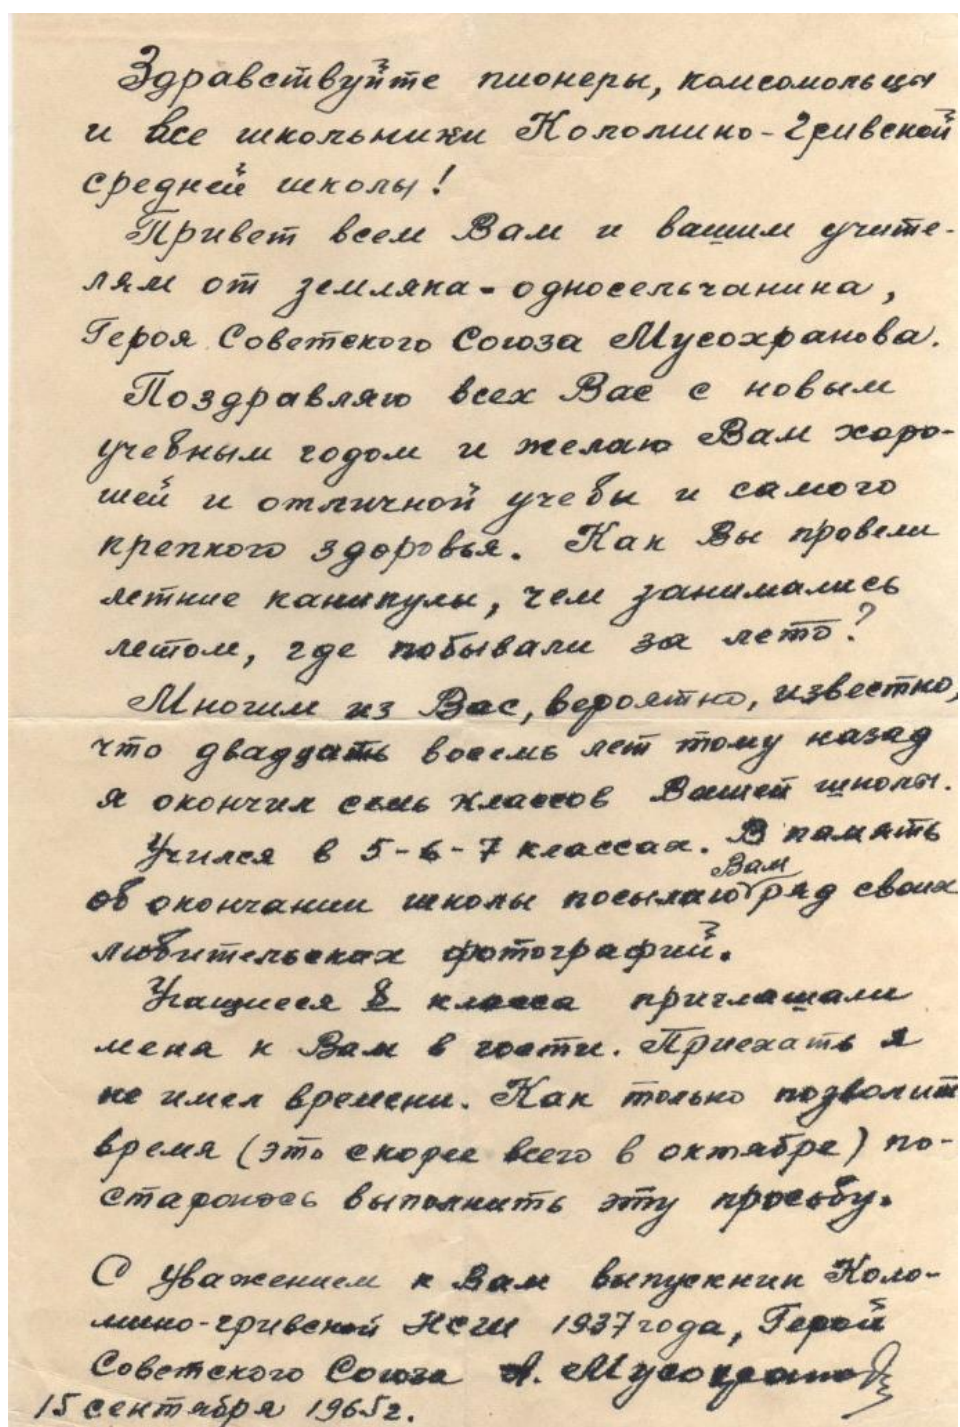 Здравствуйте пионеры, комсомольцы
и все школьники Коломино-Гривской
средней школы!
Привет всем Вам и вашим учите-
лям от земляка-односельчанина,
Героя Советского Союза Мусохранова.
Поздравляю всех Вас с новым
учебным годом и желаю Вам хоро-
шей и отличной учебы и самого
крепкого здоровья. Как Вы провели
летние каникулы, чем занимались
летом, где побывали за лето?
Многим из Вас, вероятно, известно,
что двадцать восемь лет тому назад
я окончил семь классов Вашей школы.
Учился в 5-6-7 классах. В память
об окончании школы посылаю Вам ряд своих
любительских фотографий.
Учащиеся 8 класса приглашали
меня к Вам в гости. Приехать я
не имел времени. Как только позволит
время (это скорее всего в октябре) по-
стараюсь выполнить эту просьбу.
С уважением к Вам выпускник Коло-
мино-гривской НСШ 1937 года, Герой
Советского Союза А. Мусохранов
15 сентября 1965г.